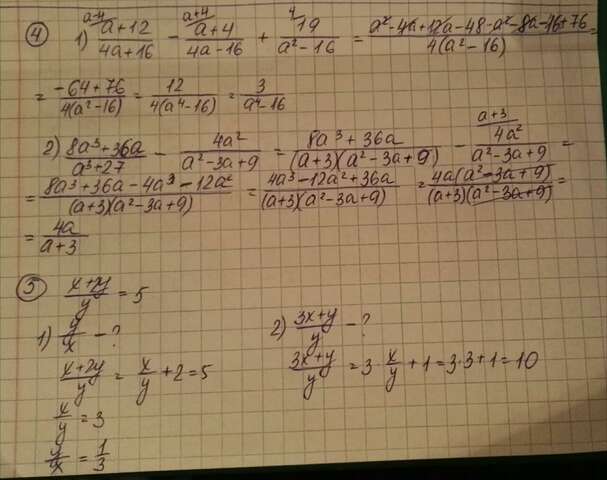 ④ 1) ᵃ⁻⁴⁾(a+12)/(4a+16) − ᵃ⁺⁴⁾(a+4)/(4a−16) + ⁴⁾19/(a²−16) = (a²−4a+12a−48−a²−8a−16+76)/(4(a²−16)) =
= (−64+76)/(4(a²−16)) = 12/(4(a⁴−16)) = 3/(a⁴−16)
2) (8a³+36a)/(a³+27) − 4a²/(a²−3a+9) = (8a³+36a)/((a+3)(a²−3a+9)) − ᵃ⁺³⁾4a²/(a²−3a+9) =
= (8a³+36a−4a³−12a²)/((a+3)(a²−3a+9)) = (4a³−12a²+36a)/((a+3)(a²−3a+9)) = (4a(a²−3a+9))/((a+3)(a²−3a+9)) =
= 4a/(a+3)
⑤ (x+2y)/y = 5
1) y/x − ?
(x+2y)/y = x/y + 2 = 5
x/y = 3
y/x = 1/3
2) (3x+y)/y − ?
(3x+y)/y = 3·x/y + 1 = 3·3+1 = 10